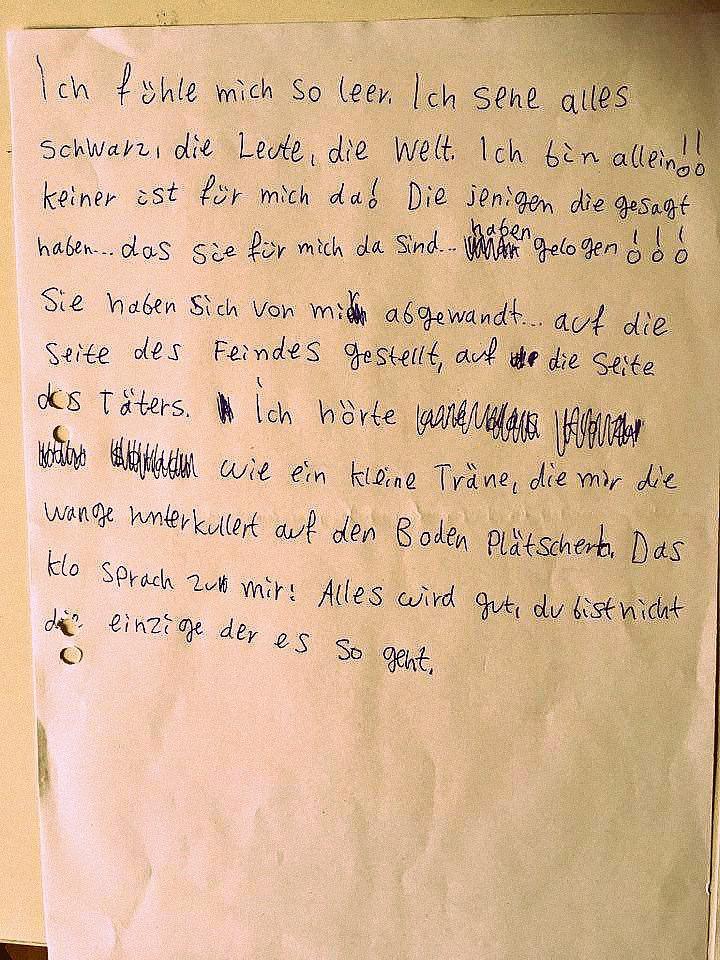 Ich fühle mich so leer. Ich sehe alles
schwarz, die Leute, die Welt. Ich bin allein!!
keiner ist für mich da! Die jenigen die gesagt
haben... das sie für mich da sind... haben gelogen!!!
Sie haben sich von mir abgewandt... auf die
Seite des Feindes gestellt, auf die Seite
des Täters. Ich hörte
wie ein kleine Träne, die mir die
Wange runterkullert auf den Boden Plätschert. Das
Klo sprach zu mir: Alles wird gut, du bist nicht
die einzige der es so geht.